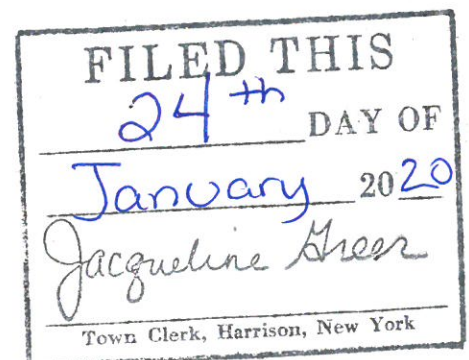 FILED THIS
24th DAY OF
January 2020
Jacqueline Greer
Town Clerk, Harrison, New York